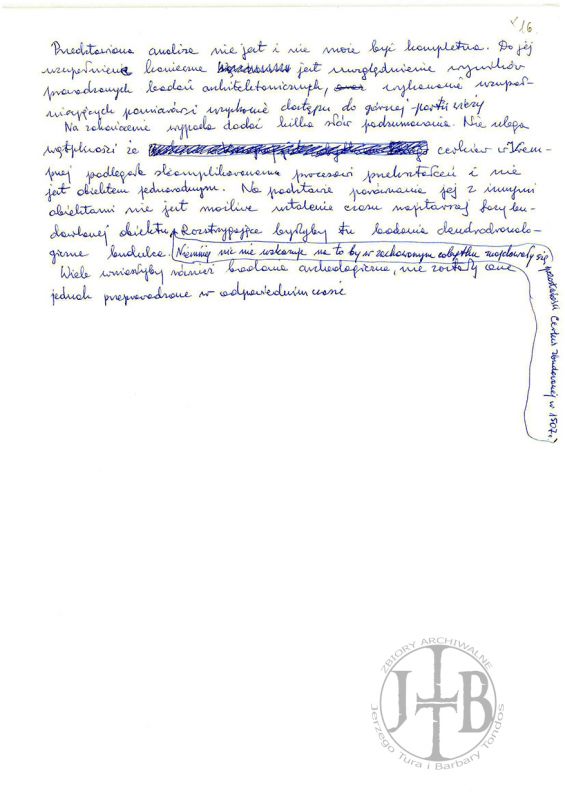 16.
Przedstawiona analiza nie jest i nie może być kompletna. Do jej
uzupełnienia konieczne jest uwzględnienie wyników
prowadzonych badań architektonicznych, wykonanie uzupeł-
niających pomiarów i uzyskanie dostępu do górnej partii wieży
Na zakończenie wypada dodać kilka słów podsumowania. Nie ulega
wątpliwości że cerkiew w Krem-
pnej podlegała skomplikowanemu procesowi przekształceń i nie
jest obiektem jednorodnym. Na podstawie porównania jej z innymi
obiektami nie jest możliwe ustalenie czasu najstarszej fazy bu-
dowlanej obiektu. Rozstrzygające byłyby tu badania dendrochronolo-
giczne budulca. Niemniej nic nie wskazuje na to by w zachowanym zabytku znajdowały się
pozostałości Cerkwi zbudowanej w 1507 r.
Wiele wniosłyby również badania archeologiczne, nie zostały one
jednak przeprowadzone w odpowiednim czasie
ZBIORY ARCHIWALNE
JTBT
Jerzego Tura i Barbary Tondos